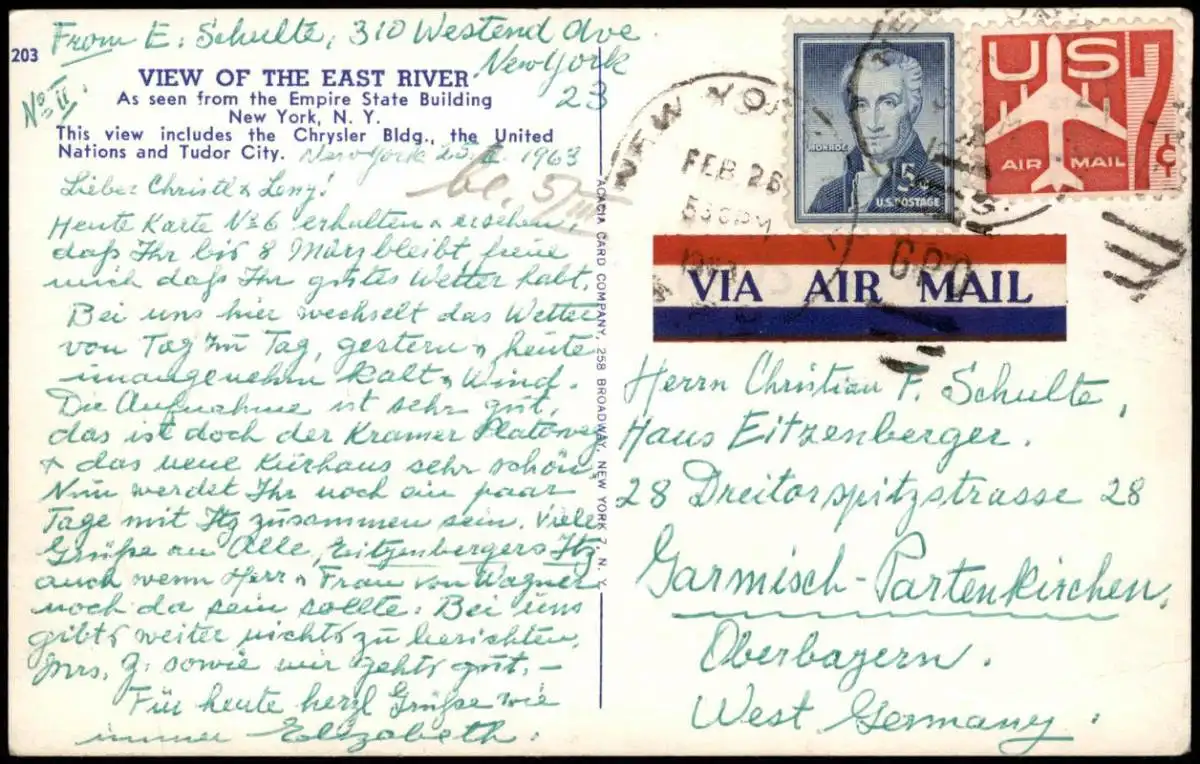 From E. Schulte, 310 Westend Ave
New York
23
203
No II.
VIEW OF THE EAST RIVER
As seen from the Empire State Building
New York, N. Y.
This view includes the Chrysler Bldg., the United
Nations and Tudor City.
New York 1963
Lieber Christl & Leny!
Heute Karte No 6 erhalten & ersehen,
daß Ihr bis 8 März bleibt, freue
mich daß Ihr gutes Wetter habt.
Bei uns hier wechselt das Wetter
von Tag zu Tag, gestern & heute
unangenehm kalt & Wind.
Die Aufnahme ist sehr gut,
das ist doch der Kramer Platoweg
& das neue Kurhaus sehr schön,
Nun werdet Ihr noch ein paar
Tage mit Itz zusammen sein. Viele
Grüße an Alle, Eitzenbergers Itz
auch wenn Herr & Frau von Wagner
noch da sein sollte. Bei uns
gibts weiter nichts zu berichten,
Mrs. G. sowie wir gehts gut. –
Für heute herzl Grüße wie
immer Elizabeth.
ACACIA CARD COMPANY, 258 BROADWAY, NEW YORK 7, N. Y.
NEW YO
FEB 26
5 30 PM
GPO
MONROE
5c
U.S. POSTAGE
US
AIR MAIL
7c
VIA AIR MAIL
Herrn Christian F. Schulte,
Haus Eitzenberger.
28 Dreitorspitzstrasse 28
Garmisch-Partenkirchen.
Oberbayern.
West Germany.